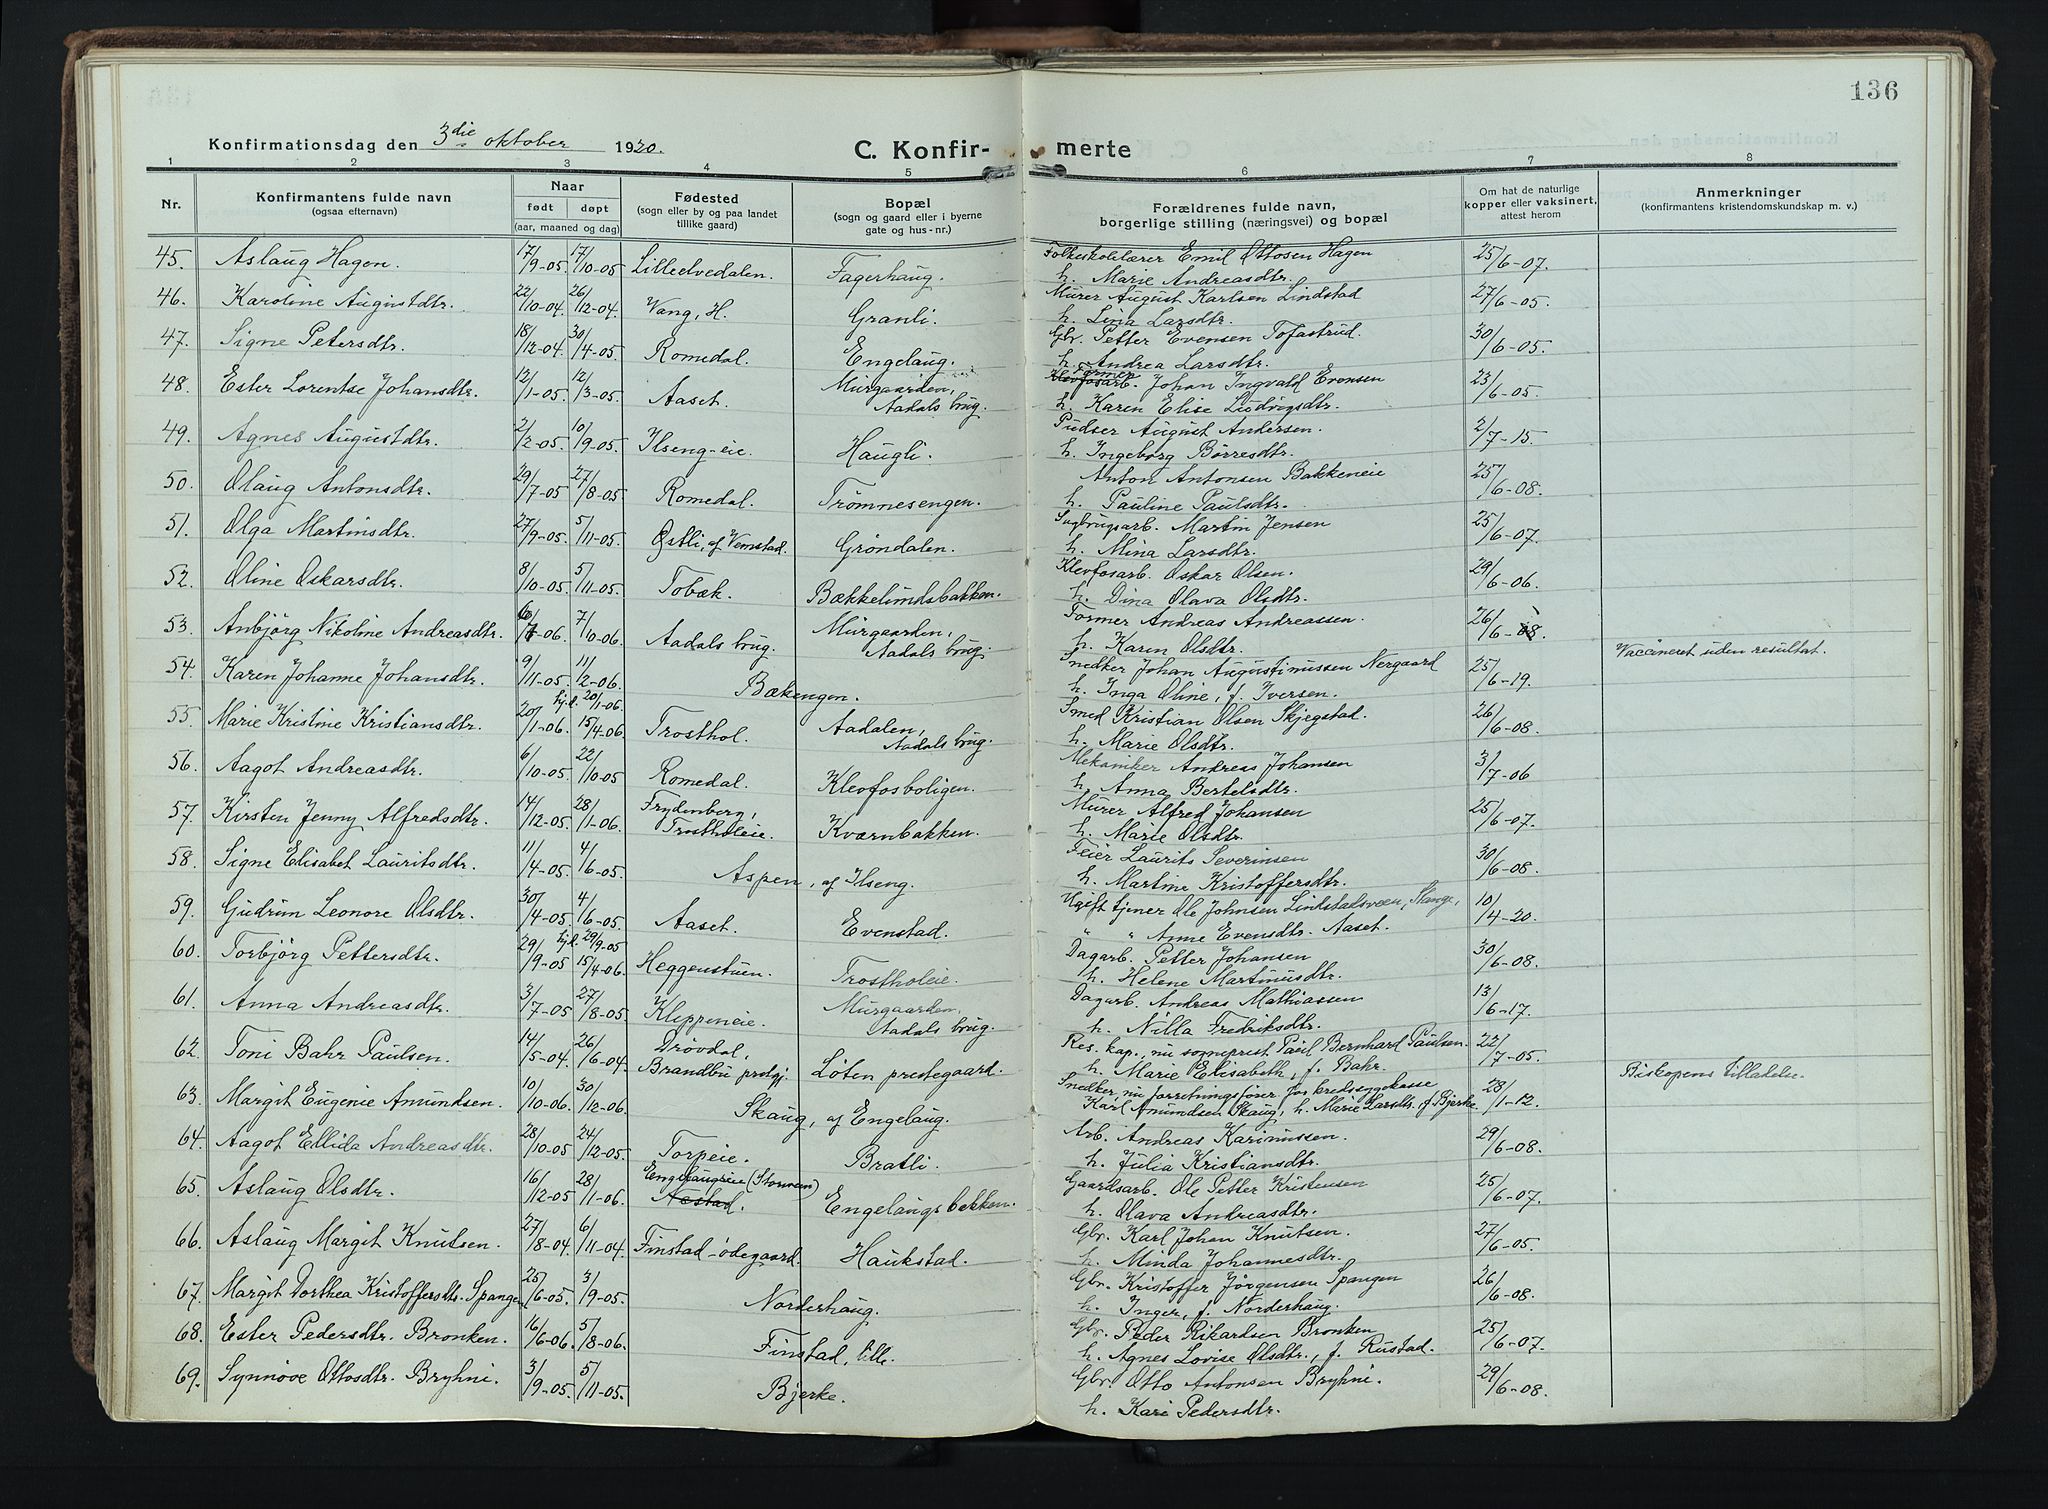 136
Konfirmationsdag den 3die oktober 1920.
C. Konfir- merte
1 2 3 4 5 6 7 8
Nr.
Konfirmantens fulde navn
(ogsaa efternavn)
Naar
født døpt
(aar, maaned og dag)
Fødested
(sogn eller by og paa landet
tillike gaard)
Bopæl
(sogn og gaard eller i byerne
gate og hus-nr.)
Forældrenes fulde navn,
borgerlige stilling (næringsvei) og bopæl
Om hat de naturlige
kopper eller vaksinert,
attest herom
Anmerkninger
(konfirmantens kristendomskundskap m. v.)
45. Aslaug Hagen. 17/9-05. 17/10-05 Lilleelvedalen. Fagerhaug. Folkeskolelærer Emil Ottosen Hagen 25/6-07.
h. Marie Andreasdtr.
46. Karoline Augustdtr. 22/10-04. 26/12-04. Vang, H. Granli. Murer August Karlsen Lindstad 27/6-05.
h. Lina Larsdtr.
47. Signe Petersdtr. 18/12-04. 30/4-05. Romedal. Engelaug. Gbr. Petter Evensen Tofastrud. 30/6-05.
h. Andrea Larsdtr.
48. Ester Lorentse Johansdtr. 12/1-05. 12/3-05. Aaset. Murgaarden, Aadals brug. Former Klevfosarb. Johan Ingvald Evensen 23/6-05.
h. Karen Elise Ludvigsdtr.
49. Agnes Augustdtr. 2/2-05. 10/9-05. Ilseng-eie. Haugli. Pudser August Andersen. 2/7-15.
h. Ingeborg Børresdtr.
50. Olaug Antonsdtr. 29/7-05 27/8-05 Romedal. Trømnesengen. Anton Antonsen Bakkeneie 25/6-08.
h. Pauline Paulsdtr.
51. Olga Martinsdtr. 27/9-05. 5/11-05. Østli, af Vemstad. Grøndalen. Sagbrugsarb. Martin Jensen 25/6-07.
h. Mina Larsdtr.
52. Oline Oskarsdtr. 8/10-05. 5/11-05. Tobæk. Bækkelundsbakken. Klevfosarb. Oskar Olsen. 29/6-06.
h. Dina Olava Olsdtr.
53. Anbjørg Nikoline Andreasdtr. 7-06. 7/10-06. Aadals brug. Murgaarden, Aadals brug. Former Andreas Andreassen. 26/6-08.
h. Karen Olsdtr. Vaccineret uden resultat.
54. Karen Johanne Johansdtr. 9/11-05. 11/2-06. Bækengen. Snedker Johan Augustinussen Nergaard 25/6-19.
h. Inga Oline, f. Iversen.
55. Marie Kristine Kristiansdtr. 20/1-06. hj.d. 20/1-06. 15/4-06. Trosthol. Aadalen, Aadals brug. Smed Kristian Olsen Skjegstad. 26/6-08.
h. Marie Olsdtr.
56. Aagot Andreasdtr. 6/10-05. 22/10-05 Romedal. Klevfosboligen. Mekaniker Andreas Johansen 3/7-06
h. Anna Bertelsdtr.
57. Kirsten Jenny Alfredsdtr. 14/12-05. 28/1-06. Frydenberg, Trostholeie. Kværnbakken. Murer Alfred Johansen 25/6-07.
h. Marie Olsdtr.
58. Signe Elisabet Lauritsdtr. 11/4-05. 4/6-05. Aspen, af Ilseng. Feier Laurits Severinsen 30/6-08.
h. Martine Kristoffersdtr.
59. Gudrun Leonore Olsdtr. 30/4-05. 4/6-05. Aaset. Evenstad. Ugift tjener Ole Johnsen Lindstadsveen, Stange, 10/4-20.
" " Anne Evensdtr. Aaset.
60. Torbjørg Pettersdtr. 29/9-05 hj.d. 29/9-05 15/4-06. Heggenstuen. Trostholeie. Dagarb. Petter Johansen 30/6-08.
h. Helene Martinusdtr.
61. Anna Andreasdtr. 3/7-05 27/8-05. Kleppeneie. Murgaarden, Aadals brug. Dagarb. Andreas Mathiassen 13/6-17.
h. Nilla Fredriksdtr.
62. Toni Bahr Paulsen. 14/5-04. 26/6-04. Drøvdal, Brandbu prstgj. Løten prestegaard. Res. kap., nu sogneprest Paul Bernhard Paulsen. 22/7-05.
h. Marie Elisabeth, f. Bahr. Biskopens tilladelse.
63. Margit Eugenie Amundsen. 10/10-06. 30/12-06. Skaug, af Engelaug. Snedker, nu forretningsfører for kredssygekasse 28/1-12.
Karl Amundsen Skaug, h. Marie Larsdtr. f. Bjerke
64. Aagot Ellida Andreasdtr. 28/10-05 24/12-05. Torpeie. Bratli. Arb. Andreas Karinussen. 29/6-08.
h. Julia Kristiansdtr.
65. Aslaug Olsdtr. 16/12-05 28/1-06. Engelaugeie (Stenmoen) Nestad. Engelaugsbakken. Gaardsarb. Ole Petter Kristensen 25/6-07.
h. Olava Andreasdtr.
66. Aslaug Margit Knutsen. 27/8-04. 6/11-04. Finstad-ødegaard. Haukstad. Gbr. Karl Johan Knutsen. 27/6-05.
h. Minda Johannesdtr.
67. Margit Dorthea Kristoffersdtr. Spangen 25/6-05. 3/9-05. Norderhaug. Gbr. Kristoffer Jørgensen Spangen 26/6-08.
h. Inger, f. Norderhaug.
68. Ester Pedersdtr. Bronken. 16/6-06. 5/8-06. Finstad, lille. Gbr. Peder Rikardsen Bronken 25/6-07.
h. Agnes Lovise Olsdtr., f. Rustad.
69. Synnøve Ottosdtr. Bryhni. 3/9-05. 5/11-05. Bjerke. Gbr. Otto Antonsen Bryhni. 29/6-08.
h. Kari Pedersdtr.